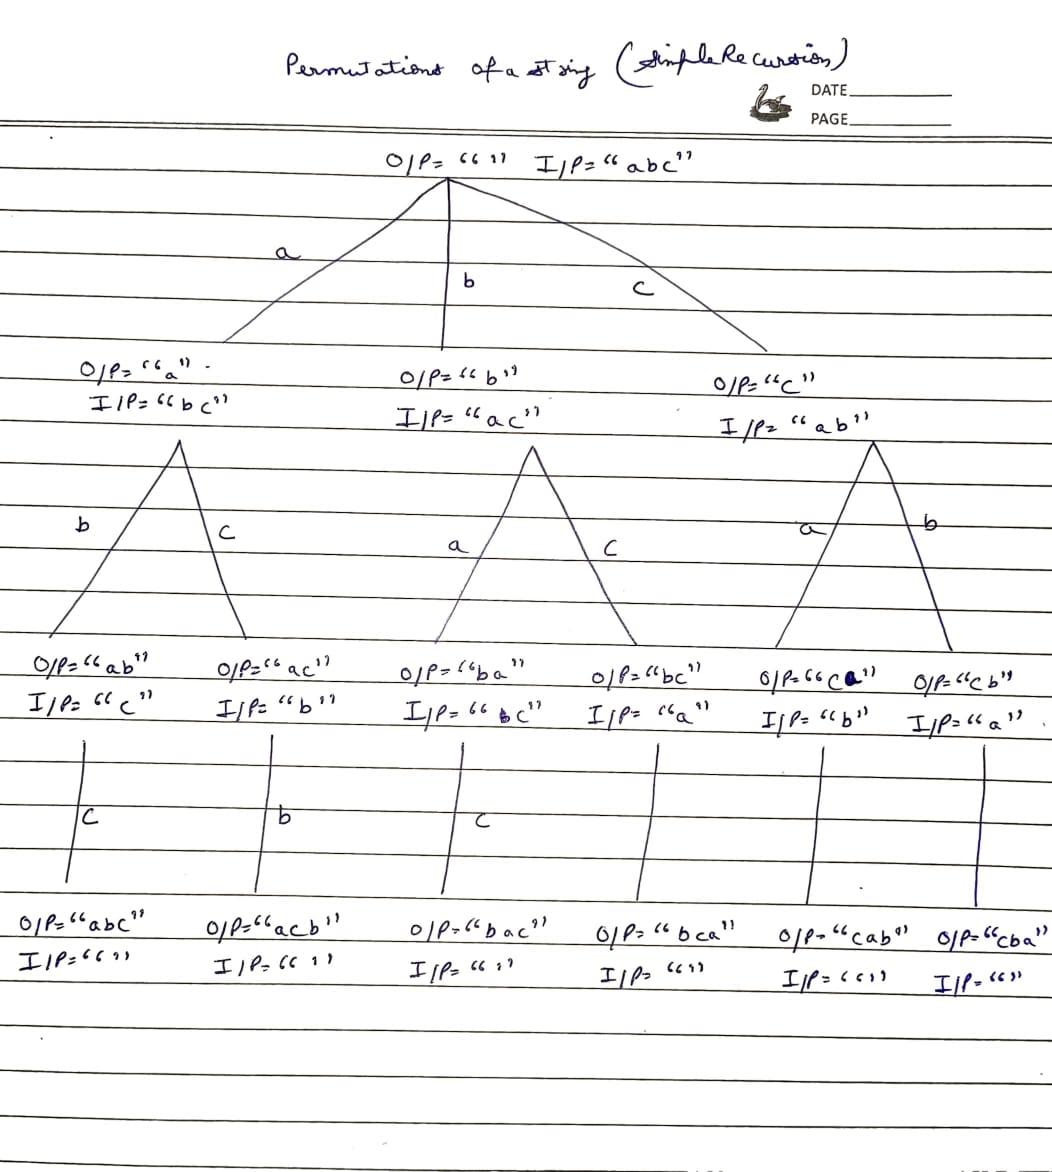 Permutations of a string (Simple Recursion)
DATE
PAGE
O/P= “ ” I/P= “abc”
a b c
O/P= “a” O/P= “b” O/P= “c”
I/P= “bc” I/P= “ac” I/P= “ab”
b c a c a b
O/P= “ab” O/P= “ac” O/P= “ba” O/P= “bc” O/P= “ca” O/P= “cb”
I/P= “c” I/P= “b” I/P= “c” I/P= “a” I/P= “b” I/P= “a”
c b c
O/P= “abc” O/P= “acb” O/P= “bac” O/P= “bca” O/P= “cab” O/P= “cba”
I/P= “ ” I/P= “ ” I/P= “ ” I/P= “ ” I/P= “ ” I/P= “ ”